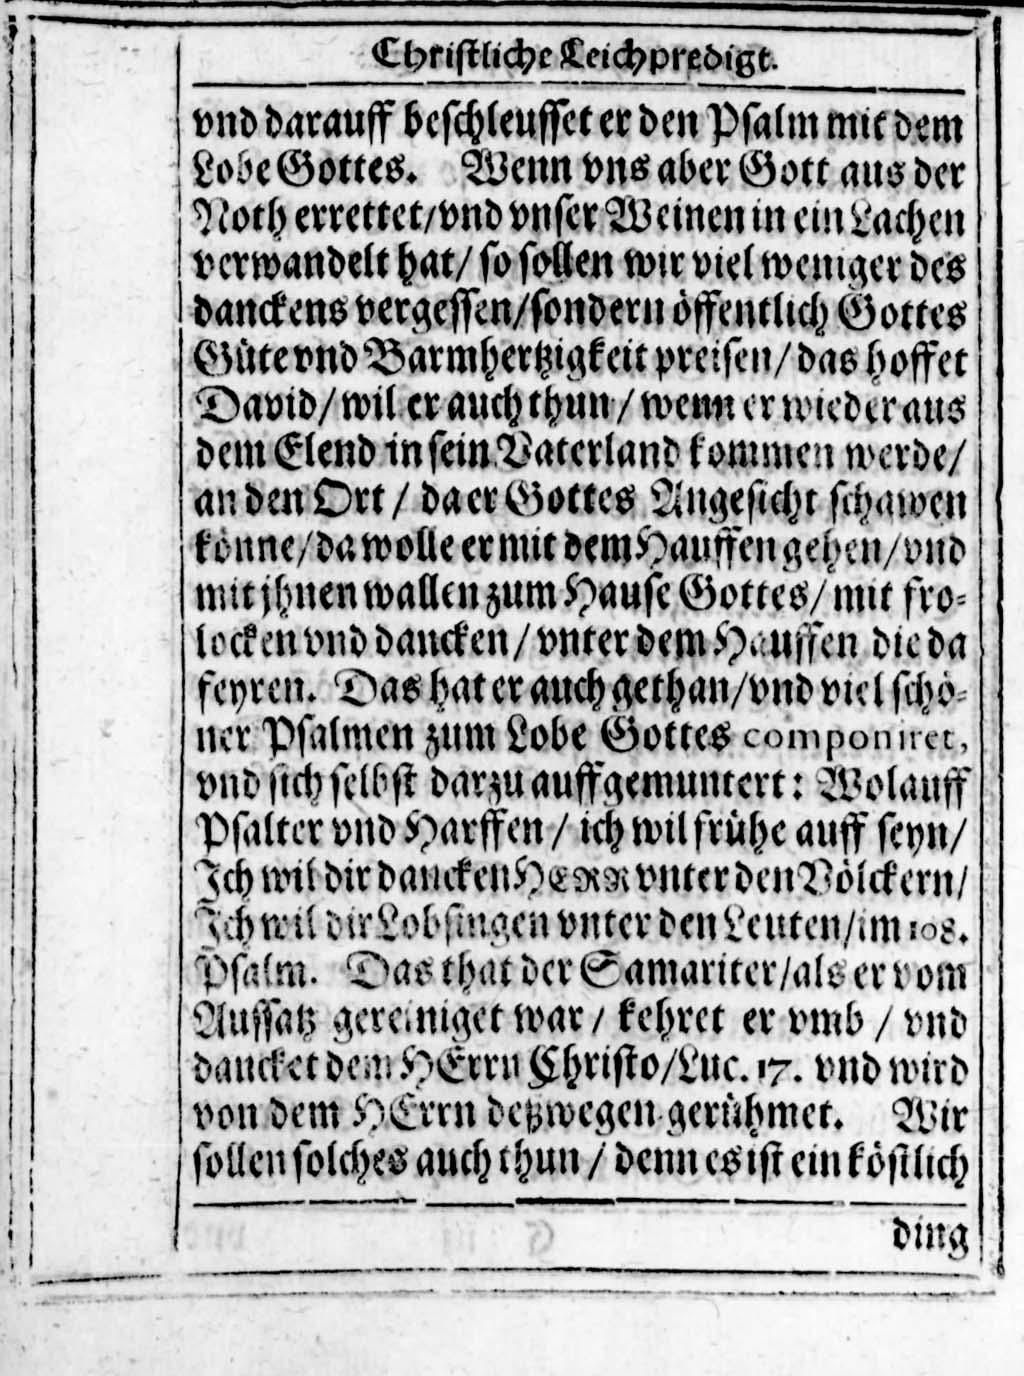 Christliche Leichpredigt.
vnd darauff beschleusset er den Psalm mit dem
Lobe Gottes. Wenn vns aber Gott aus der
Noth errettet/vnd vnser Weinen in ein Lachen
verwandelt hat/ so sollen wir viel weniger des
danckens vergessen/sondern öffentlich Gottes
Güte vnd Barmhertzigkeit preisen/ das hoffet
David/ wil er auch thun/ wenn er wieder aus
dem Elend in sein Vaterland kommen werde/
an den Ort/ da er Gottes Angesicht schawen
könne/da wolle er mit dem Hauffen gehen/vnd
mit jhnen wallen zum Hause Gottes/ mit fro-
locken vnd dancken/ vnter dem Hauffen die da
feyren. Das hat er auch gethan/vnd viel schö-
ner Psalmen zum Lobe Gottes componiret,
vnd sich selbst darzu auffgemuntert: Wolauff
Psalter vnd Harffen/ ich wil frühe auff seyn/
Ich wil dir dancken HERR vnter den Völckern/
Ich wil dir Lobsingen vnter den Leuten/im 108.
Psalm. Das that der Samariter/als er vom
Aussatz gereiniget war/ kehret er vmb/ vnd
dancket dem HErrn Christo/Luc. 17. vnd wird
von dem HErrn deßwegen gerühmet. Wir
sollen solches auch thun/ denn es ist ein köstlich
ding